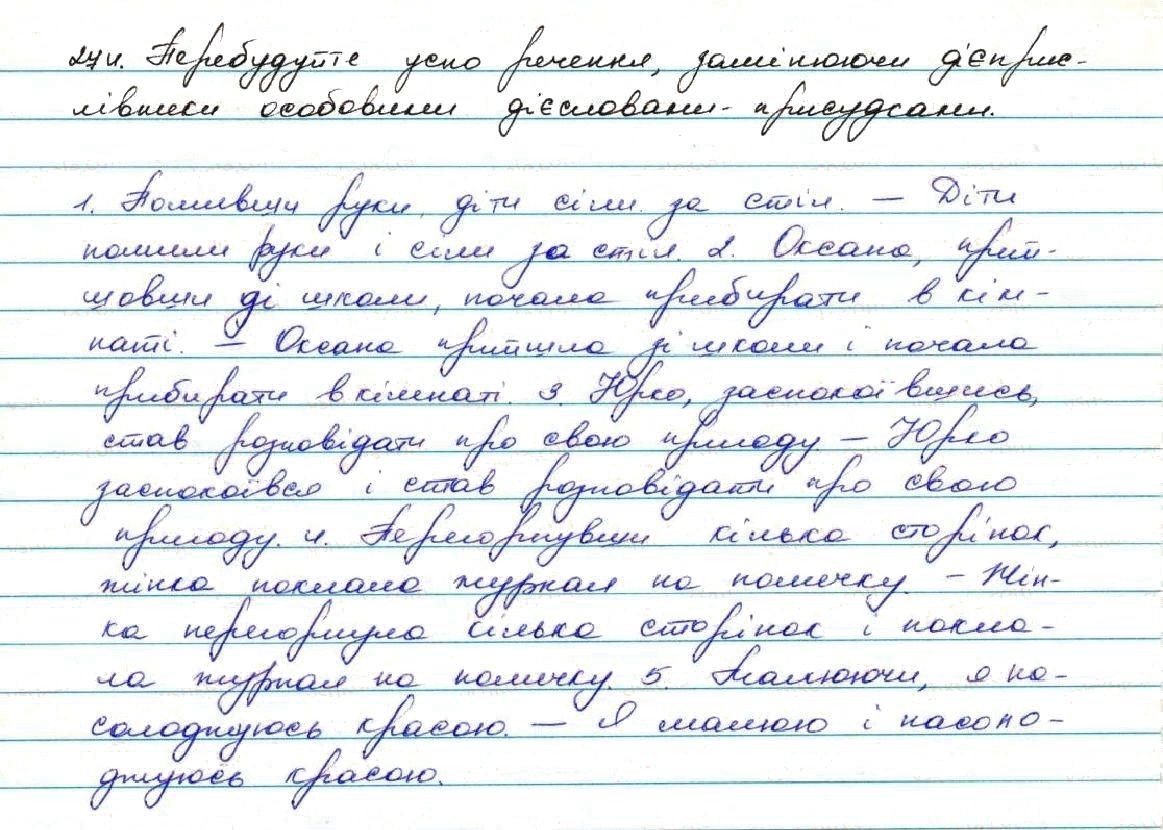 274. Перебудуйте усно речення, замінюючи дієприс-
лівники особовими дієсловами-присудками.
1. Помивши руки, діти сіли за стіл. — Діти
помили руки і сіли за стіл. 2. Оксана, прий-
шовши зі школи, почала прибирати в кім-
наті. — Оксана прийшла зі школи і почала
прибирати в кімнаті. 3. Юрко, заспокоївшись,
став розповідати про свою пригоду — Юрко
заспокоївся і став розповідати про свою
пригоду. 4. Перегорнувши кілька сторінок,
жінка поклала журнал на поличку. — Жін-
ка перегорнула кілька сторінок і покла-
ла журнал на поличку. 5. Малюючи, я на-
солоджуюсь красою. — Я малюю і насоло-
джуюсь красою.